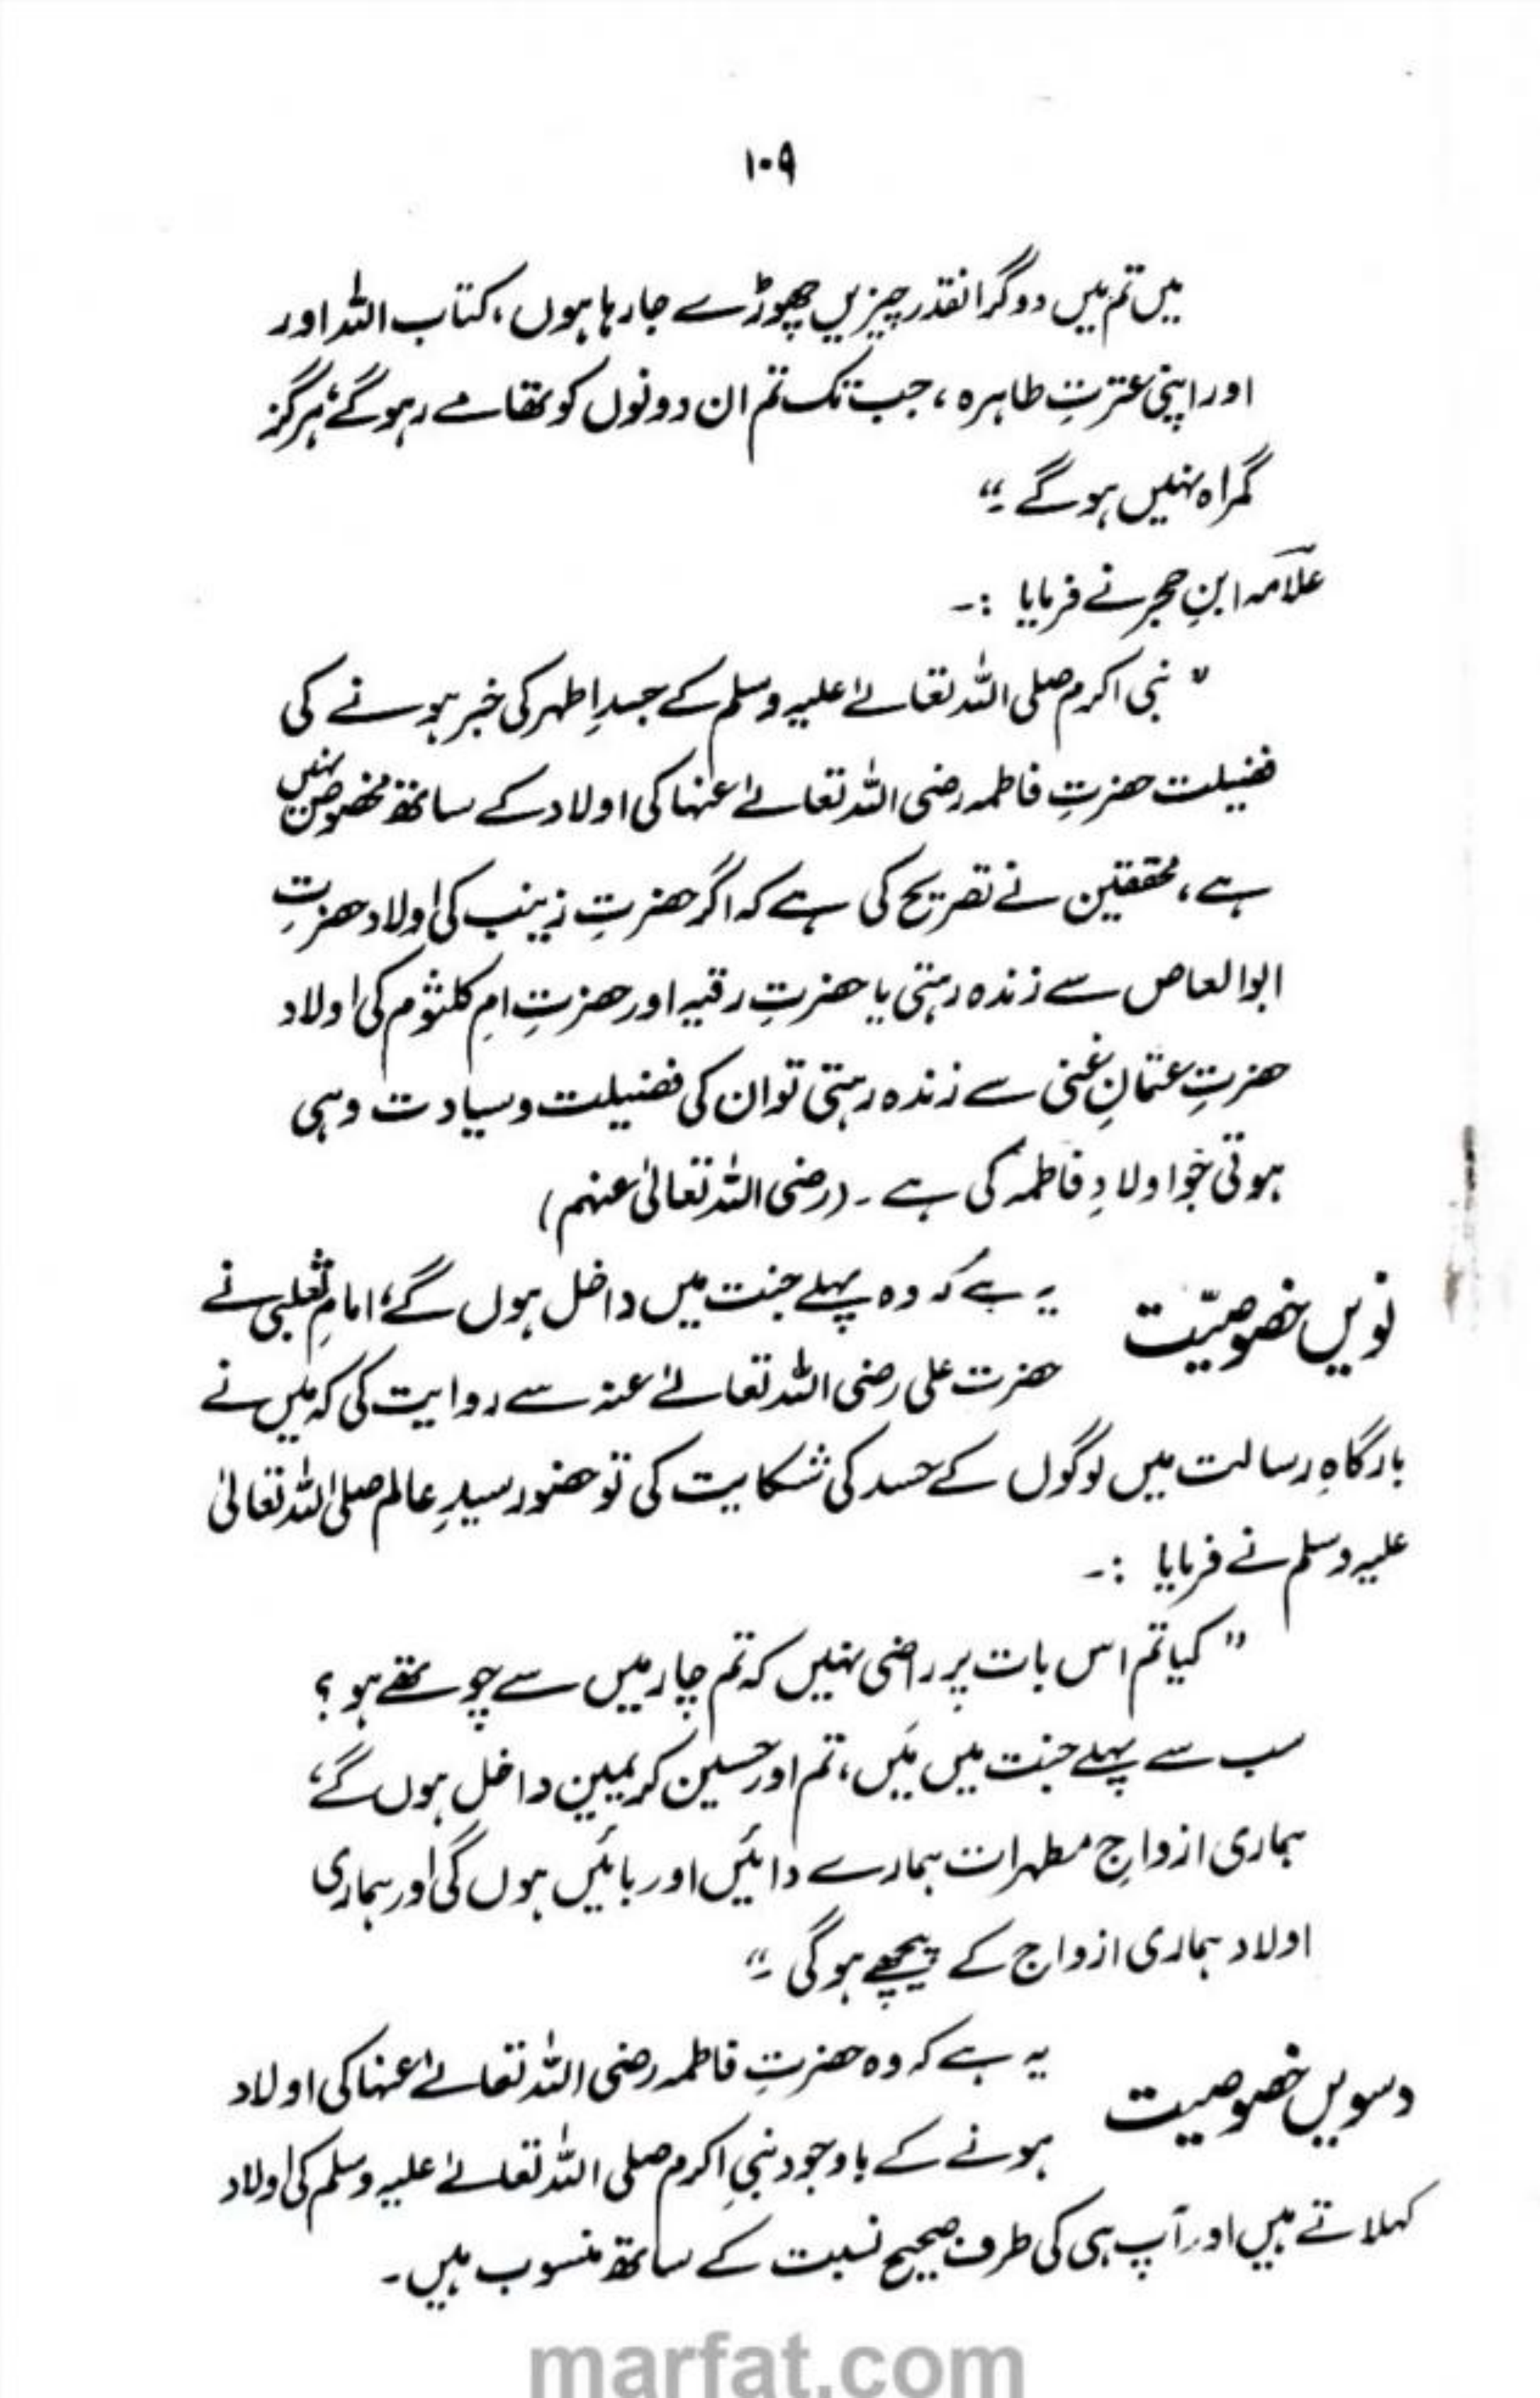 ۱۰۹
میں تم میں دو گرانقدر چیزیں چھوڑے جا رہا ہوں، کتاب اللہ اور
اور اپنی عترتِ طاہرہ، جب تک تم ان دونوں کو تھامے رہو گے، ہرگز
گمراہ نہیں ہو گے۔“
علّامہ ابنِ حجر نے فرمایا :۔
” نبی اکرم صلی اللہ تعالےٰ علیہ وسلم کے جسدِ اطہر کی خبر ہونے کی
فضیلت حضرتِ فاطمہ رضی اللہ تعالےٰ عنہا کی اولاد کے ساتھ مخصوص نہیں
ہے، محققین نے تصریح کی ہے کہ اگر حضرتِ زینب کی اولاد حضرتِ
ابوالعاص سے زندہ رہتی یا حضرتِ رقیہ اور حضرتِ امِ کلثوم کی اولاد
حضرتِ عثمانِ غنی سے زندہ رہتی تو ان کی فضیلت و سیادت وہی
ہوتی جو اولادِ فاطمہ کی ہے۔ (رضی اللہ تعالیٰ عنہم)
نویں خصوصیّت یہ ہے کہ وہ پہلے جنت میں داخل ہوں گے، امامِ ثعلبی نے
حضرت علی رضی اللہ تعالےٰ عنہ سے روایت کی کہ مَیں نے
بارگاہِ رسالت میں لوگوں کے حسد کی شکایت کی تو حضور سیدِ عالم صلی اللہ تعالیٰ
علیہ وسلم نے فرمایا :۔
” کیا تم اس بات پر راضی نہیں کہ تم چار میں سے چوتھے ہو ؟
سب سے پہلے جنت میں مَیں، تم اور حسین کریمین داخل ہوں گے،
ہماری ازواجِ مطہرات ہمارے دائیں اور بائیں ہوں گی اور ہماری
اولاد ہماری ازواج کے پیچھے ہو گی۔“
دسویں خصوصیت یہ ہے کہ وہ حضرتِ فاطمہ رضی اللہ تعالےٰ عنہا کی اولاد
ہونے کے باوجود نبیِ اکرم صلی اللہ تعالےٰ علیہ وسلم کی اولاد
کہلاتے ہیں اور آپ ہی کی طرف صحیح نسبت کے ساتھ منسوب ہیں۔
marfat.com